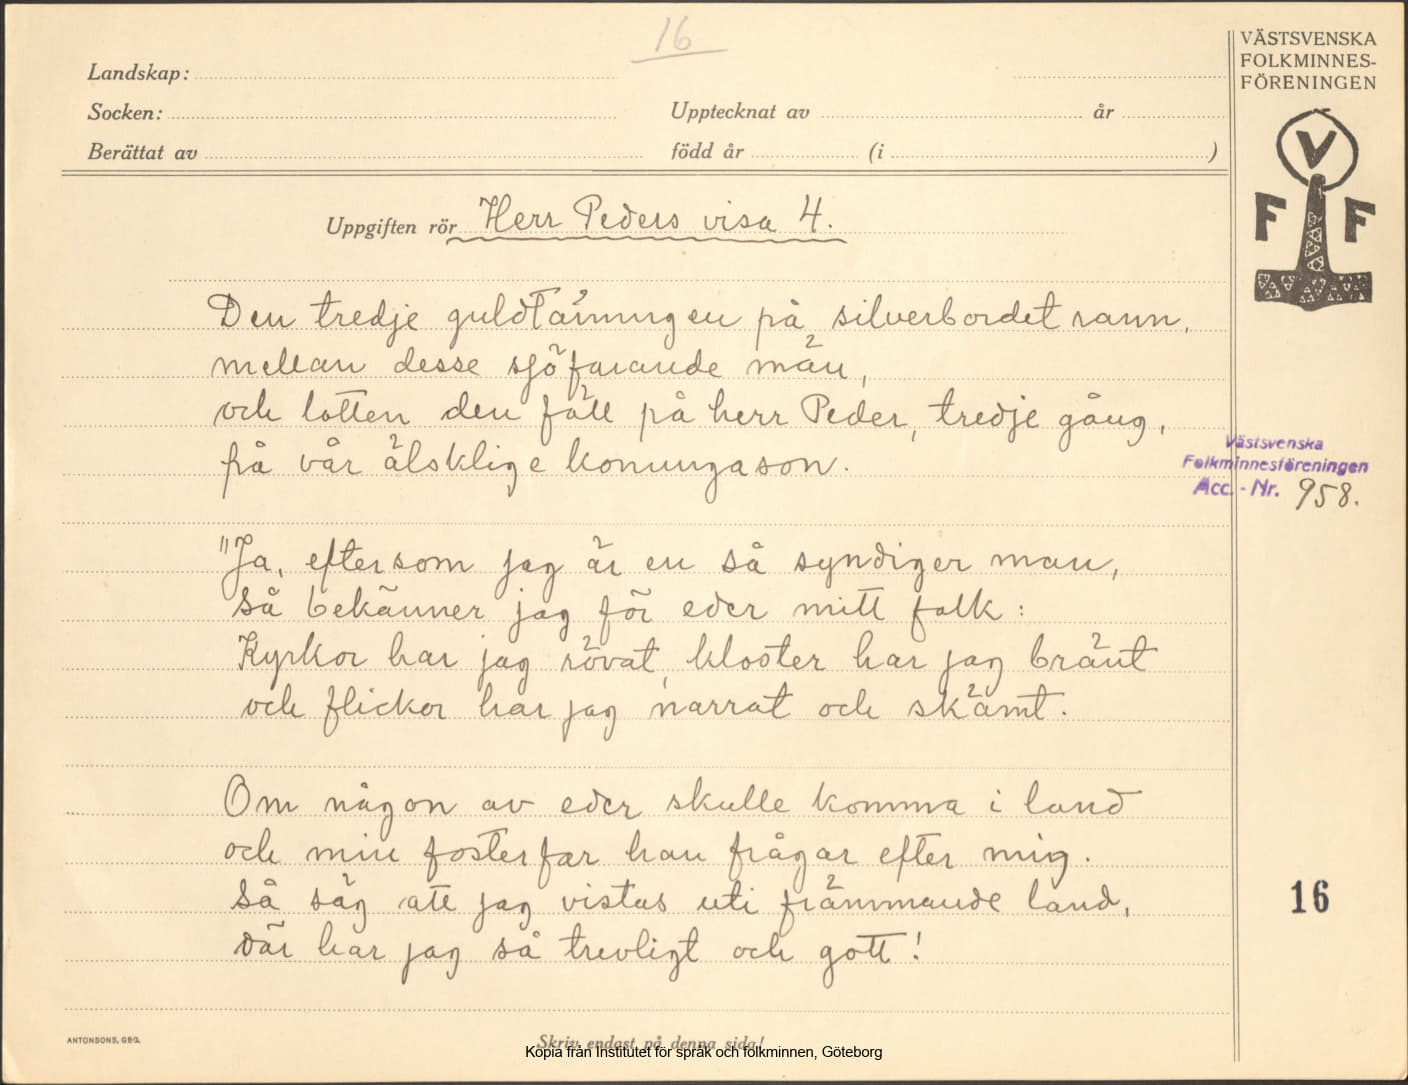 16
Landskap:
Socken:
Upptecknat av
år
Berättat av
född år
(i
)
VÄSTSVENSKA
FOLKMINNES-
FÖRENINGEN
V
F F
Uppgiften rör Herr Peders visa 4.
Den tredje guldtärningen på silverbordet rann,
mellan desse sjöfarande män,
och lotten den föll på herr Peder, tredje gång,
på vår älsklige konungason.
"Ja, eftersom jag är en så syndiger man,
så bekänner jag för eder mitt folk:
Kyrkor har jag rövat, kloster har jag bränt
och flickor har jag narrat och skämt.
Om någon av eder skulle komma i land
och min fosterfar han frågar efter mig.
Så säg att jag vistas uti främmande land,
där har jag så trevligt och gott!
Västsvenska
Folkminnesföreningen
Acc. - Nr. 958.
16
ANTONSONS, GBG.
Skriv endast på denna sida!
Kopia från Institutet för språk och folkminnen, Göteborg